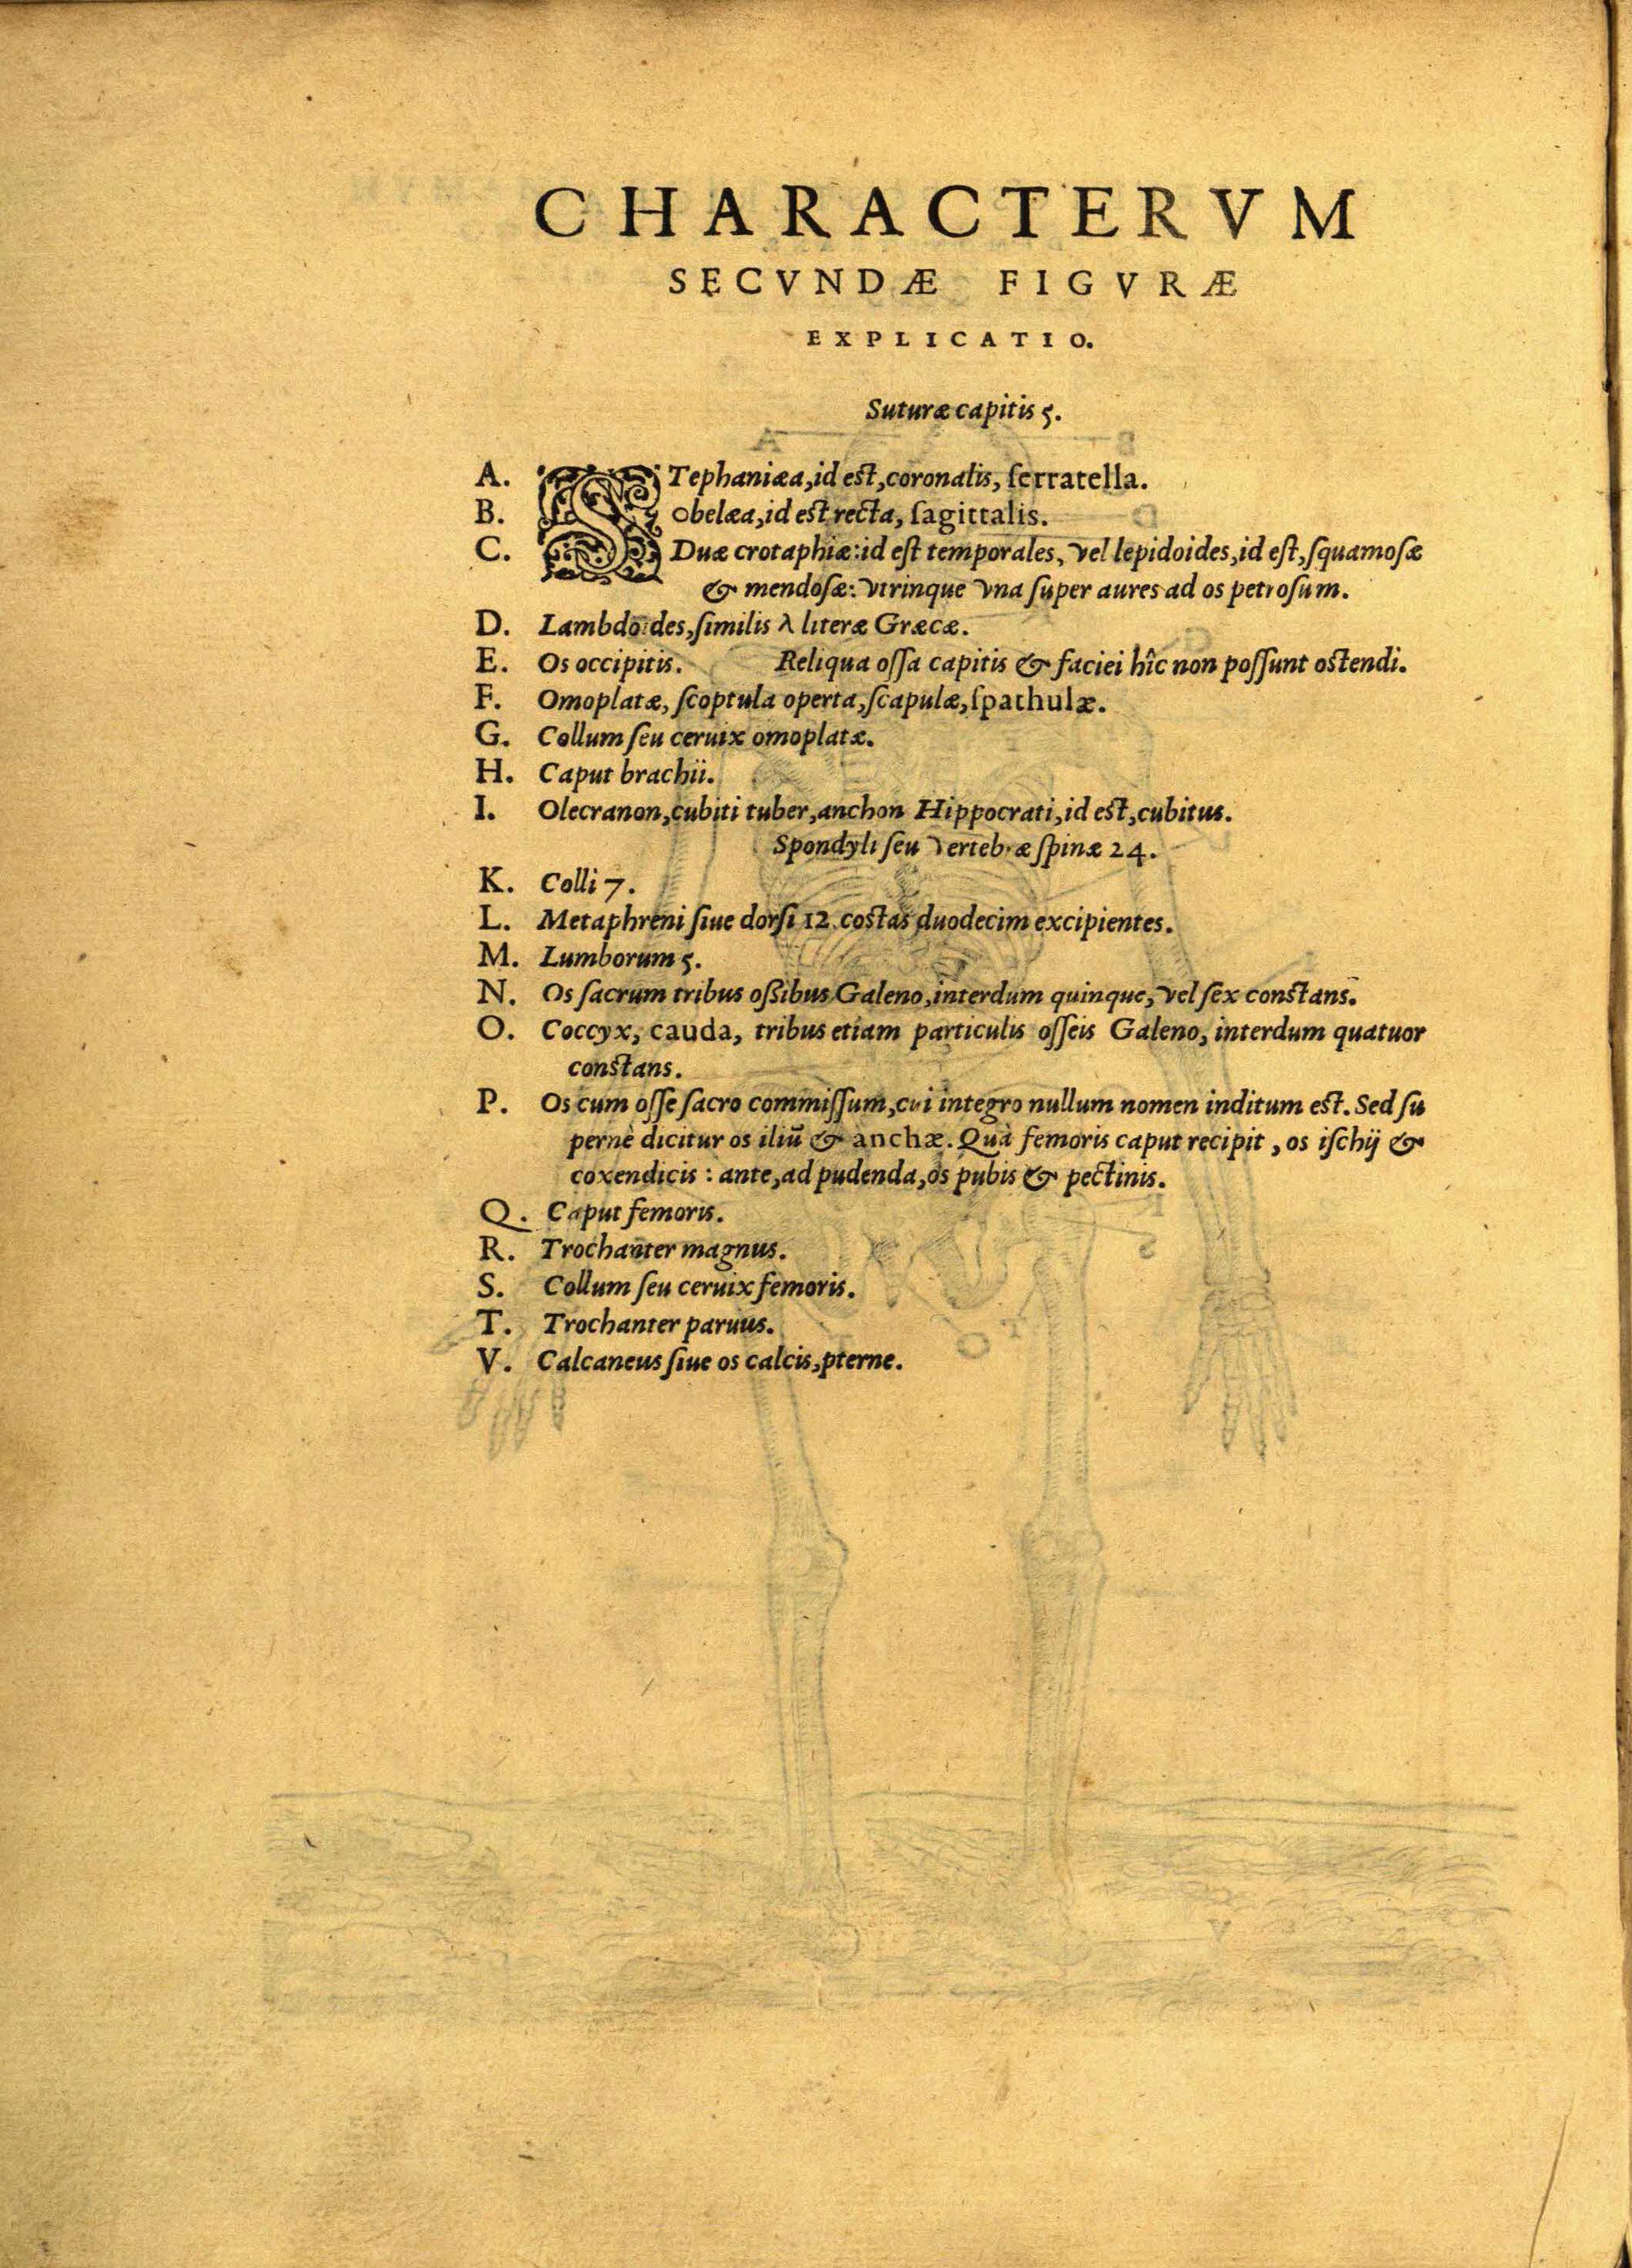 CHARACTERVM
SECVNDÆ FIGVRÆ
EXPLICATIO.
Suturæ capitis 5.
A. STephaniæa, id est, coronalis, ſerratella.
B. obelæa, id est recta, ſagittalis.
C. Duæ crotaphiæ: id eſt temporales, vel lepidoides, id eſt, ſquamoſæ
& mendoſæ: vtrinque vna ſuper aures ad os petroſum.
D. Lambdoides, ſimilis λ literæ Græcæ.
E. Os occipitis. Reliqua oſſa capitis & faciei hîc non poſſunt ostendi.
F. Omoplatæ, ſcoptula operta, ſcapulæ, ſpathulæ.
G. Collum ſeu ceruix omoplatæ.
H. Caput brachii.
I. Olecranon, cubiti tuber, anchon Hippocrati, id est, cubitus.
Spondyli ſeu vertebræ ſpinæ 24.
K. Colli 7.
L. Metaphreni ſiue dorſi 12. costas duodecim excipientes.
M. Lumborum 5.
N. Os ſacrum tribus oßibus Galeno, interdum quinque, vel ſex constans.
O. Coccyx, cauda, tribus etiam particulis oſſeis Galeno, interdum quatuor
constans.
P. Os cum oſſe ſacro commiſſum, cui integro nullum nomen inditum est. Sed ſu
pernè dicitur os iliū & anchæ. Quà femoris caput recipit, os iſchij &
coxendicis: ante, ad pudenda, os pubis & pectinis.
Q. Caput femoris.
R. Trochanter magnus.
S. Collum ſeu ceruix femoris.
T. Trochanter paruus.
V. Calcaneus ſiue os calcis, pterne.